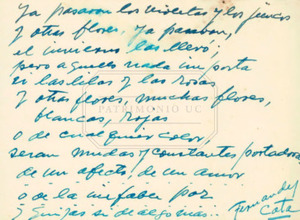 Ya pasaron las violetas y los juncos
y otras flores, ya pasaron,
el invierno las llevó;
pero aquello nada importa
si las lilas y las rosas
y otras flores, muchas flores,
blancas, rojas
o de cualquier color,
seran mudas y constantes portadoras
de un afecto, de un amor
o de la inefable paz
y quizás si de algo más...
Fernandez
PATRIMONIO UC